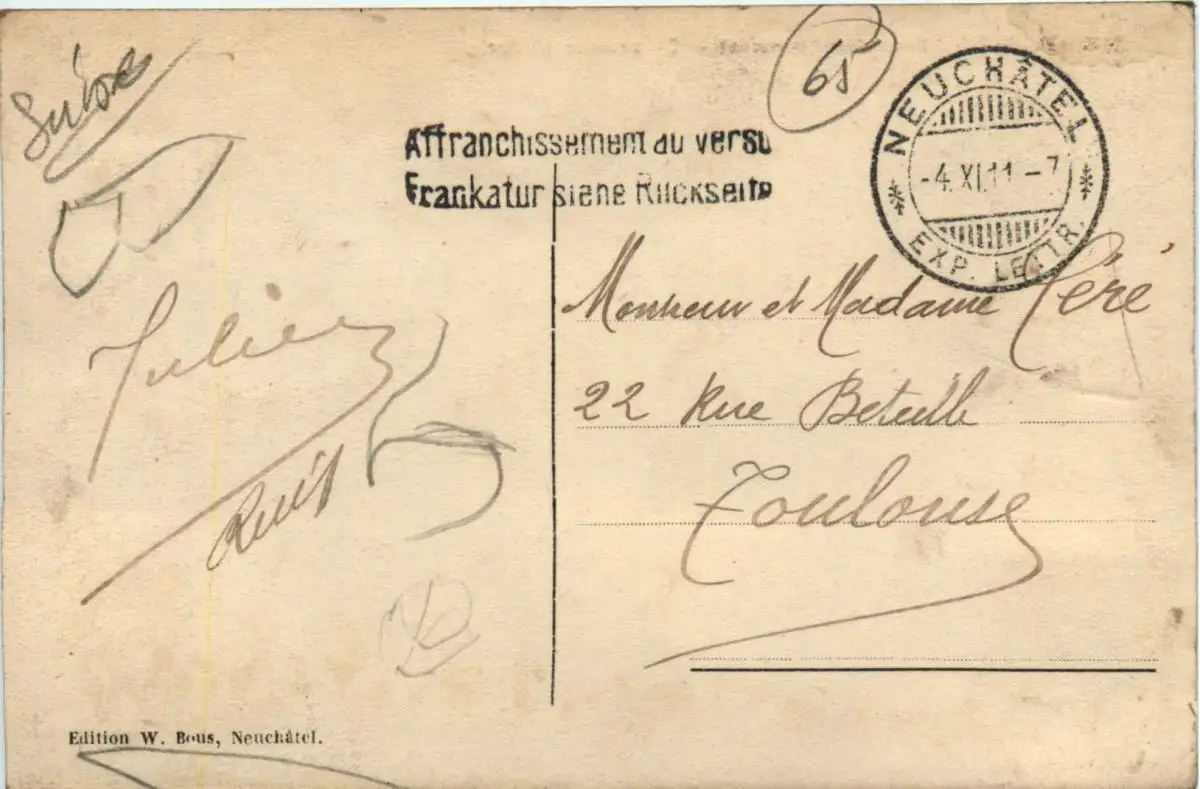 Suisse
65
NEUCHÂTEL
-4.XI.11-7
EXP. LETTR.
Affranchissement au verso
Frankatur siehe Rückseite
Monsieur et Madame Céré
22 Rue Béteille
Toulouse
Julien
Edition W. Bous, Neuchâtel.